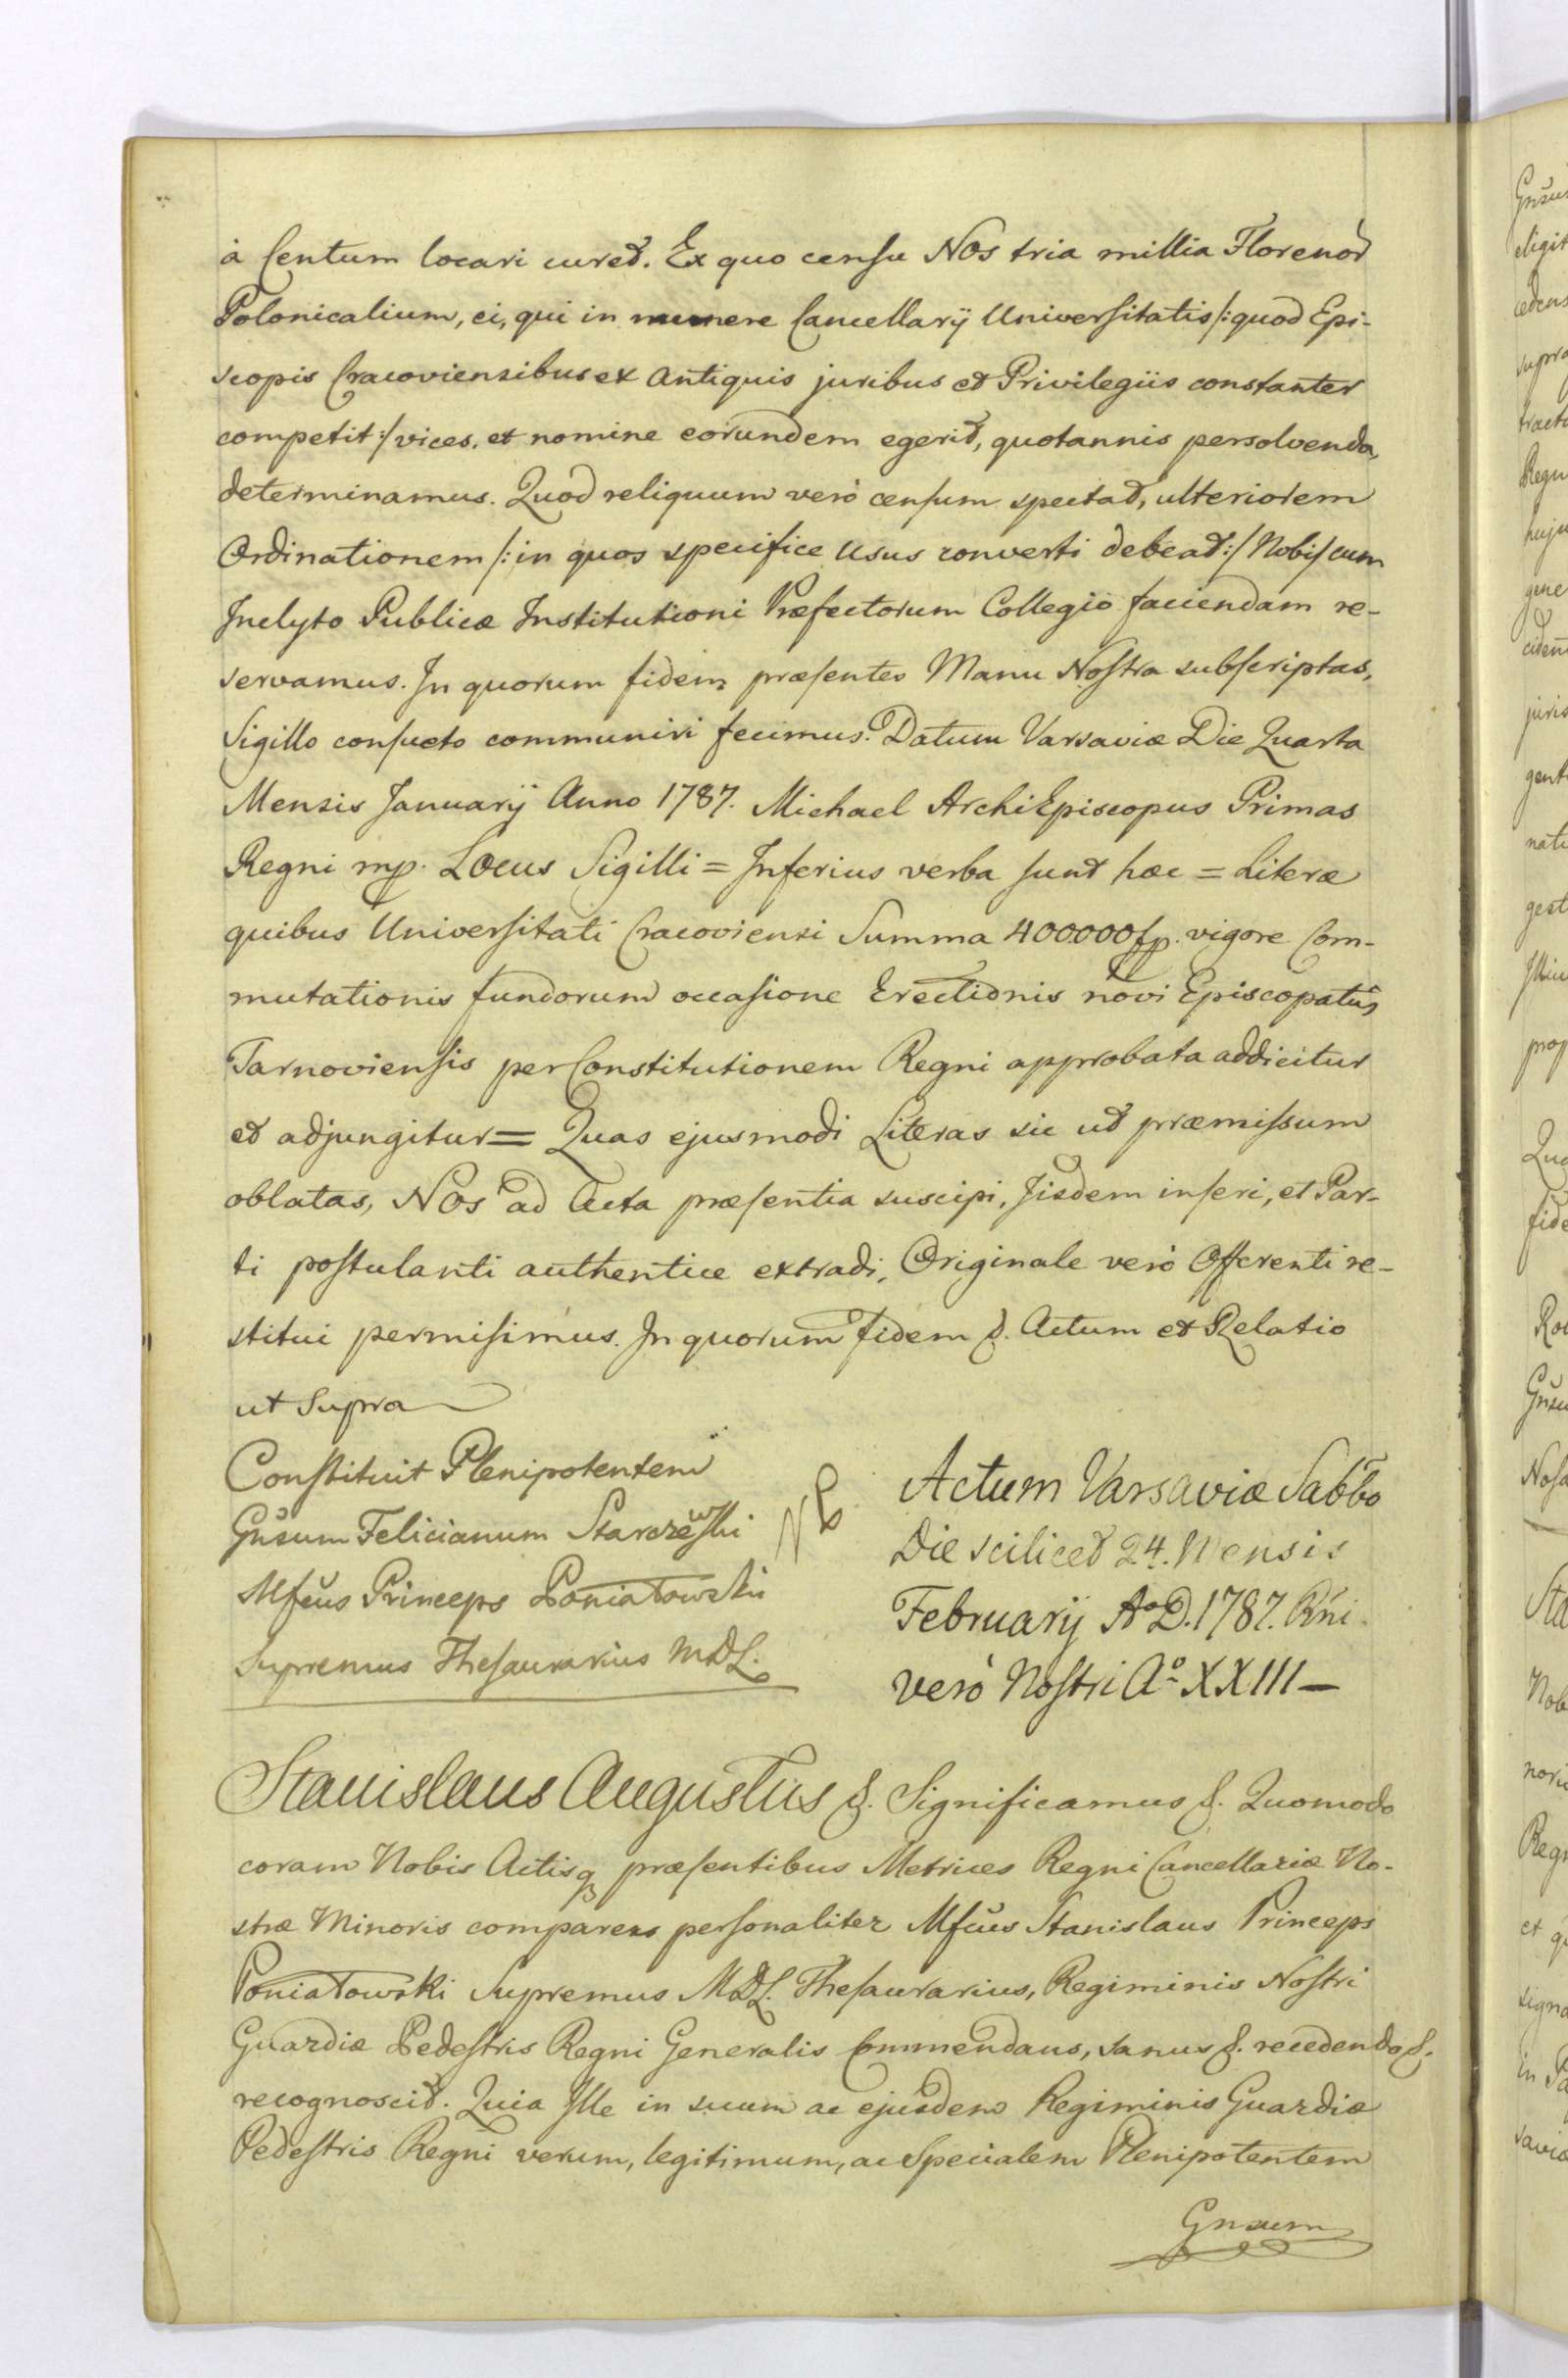 à Centum locari curet. Ex quo censu Nos tria millia Florenor
Polonicalium, ei, qui in munere Cancellarÿ Universitatis /: quod Epi-
scopis Cracoviensibus ex Antiquis juribus et Privilegiis constanter
competit :/ vices, et nomine eorundem egerit, quotannis persolvenda,
determinamus. Quod reliquum verò censum spectat, ulteriorem
Ordinationem /: in quos specifice Usus converti debeat :/ Nobis cum
Inclyto Publicæ Institutioni Præfectorum Collegio faciendam re-
servamus. In quorum fidem præsentes Manu Nostra subscriptas,
Sigillo consueto communiri fecimus. Datum Varsaviæ Die Quarta
Mensis Januarÿ Anno 1787. Michael ArchiEpiscopus Primas
Regni mp. Locus Sigilli = Inferius verba sunt hæc = Literæ
quibus Universitati Cracoviensi Summa 400000 fp. vigore Com-
mutationis fundorum occasione Erectionis novi Episcopatûs
Tarnoviensis per Constitutionem Regni approbata addicitur
et adjungitur = Quas ejusmodi Literas sic ut præmissum
oblatas, Nos ad Acta præsentia suscipi, Iisdem inseri, et Par-
ti postulanti authentice extradi, Originale verò Offerenti re-
stitui permisimus. In quorum fidem &. Actum et Relatio
ut Supra
Constituit Plenipotentem
Gnsum Felicianum Starczewski
Mfcus Princeps Poniatowski
Supremus Thesaurarius MDL.
NB
Actum Varsaviæ Sabbo
Die scilicet 24. Mensis
Februarÿ Aº D. 1787. Rni
verò Nostri Aº XXIII —
Stanislaus Augustus &. Significamus &. Quomodo
coram Nobis Actisq præsentibus Metrices Regni Cancellariæ No-
stræ Minoris comparens personaliter Mfcus Stanislaus Princeps
Poniatowski Supremus MDL. Thesaurarius, Regiminis Nostri
Guardiæ Pedestris Regni Generalis Commendans, sanus &. recedendo &.
recognoscit. Quia Ille in suum ac ejusdem Regiminis Guardiæ
Pedestris Regni verum, legitimum, ac Specialem Plenipotentem
Gnsum